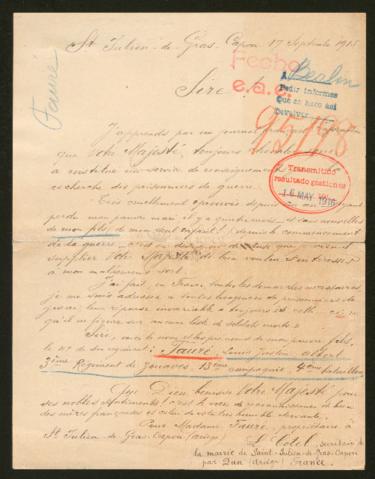 St Julien-de-Gras-Capou 17 Septembre 1915
Fauré
Fecho
e.a.e.
A Berlin
Pedir informes
Que se haga así
Devolver
Sire
95178
J'apprends par un journal
que Votre Majesté, toujours
a institué un service de renseignements
recherche des prisonniers de guerre.
Transmitido
resultado gestiones
16 MAY. 1916
Très cruellement éprouvée depuis
perdu mon pauvre mari il y a quatre mois et sans nouvelles
de mon fils, de mon seul enfant! (depuis le commencement
de la guerre
supplier Votre Majesté de bien vouloir s'intéresser
à mon malheureux sort.
J'ai fait, en France toutes les démarches nécessaires,
je me suis adressée à toutes les agences de prisonniers de
guerre; leur réponse invariable a toujours été celle-ci
qu'il ne figure sur aucune liste de soldats morts.
Sire, voici le nom et les prénoms de mon pauvre fils,
le no de son régiment: Fauré, Louis, Justin, albert
3ème Régiment de zouaves, 13ème compagnie, 4ème bataillon
Que Dieu bénisse Votre Majesté pour
ses nobles sentiments! c'est le vœu de reconnaissance et bien
des mères françaises et celui de votre très humble servante.
Pour Madame Fauré, propriétaire à
St Julien de Gras-Capou (ariège)
L. Cotel, secrétaire de
la mairie de Saint-Julien-de-Gras-Capou
par Dun (ariège) France.